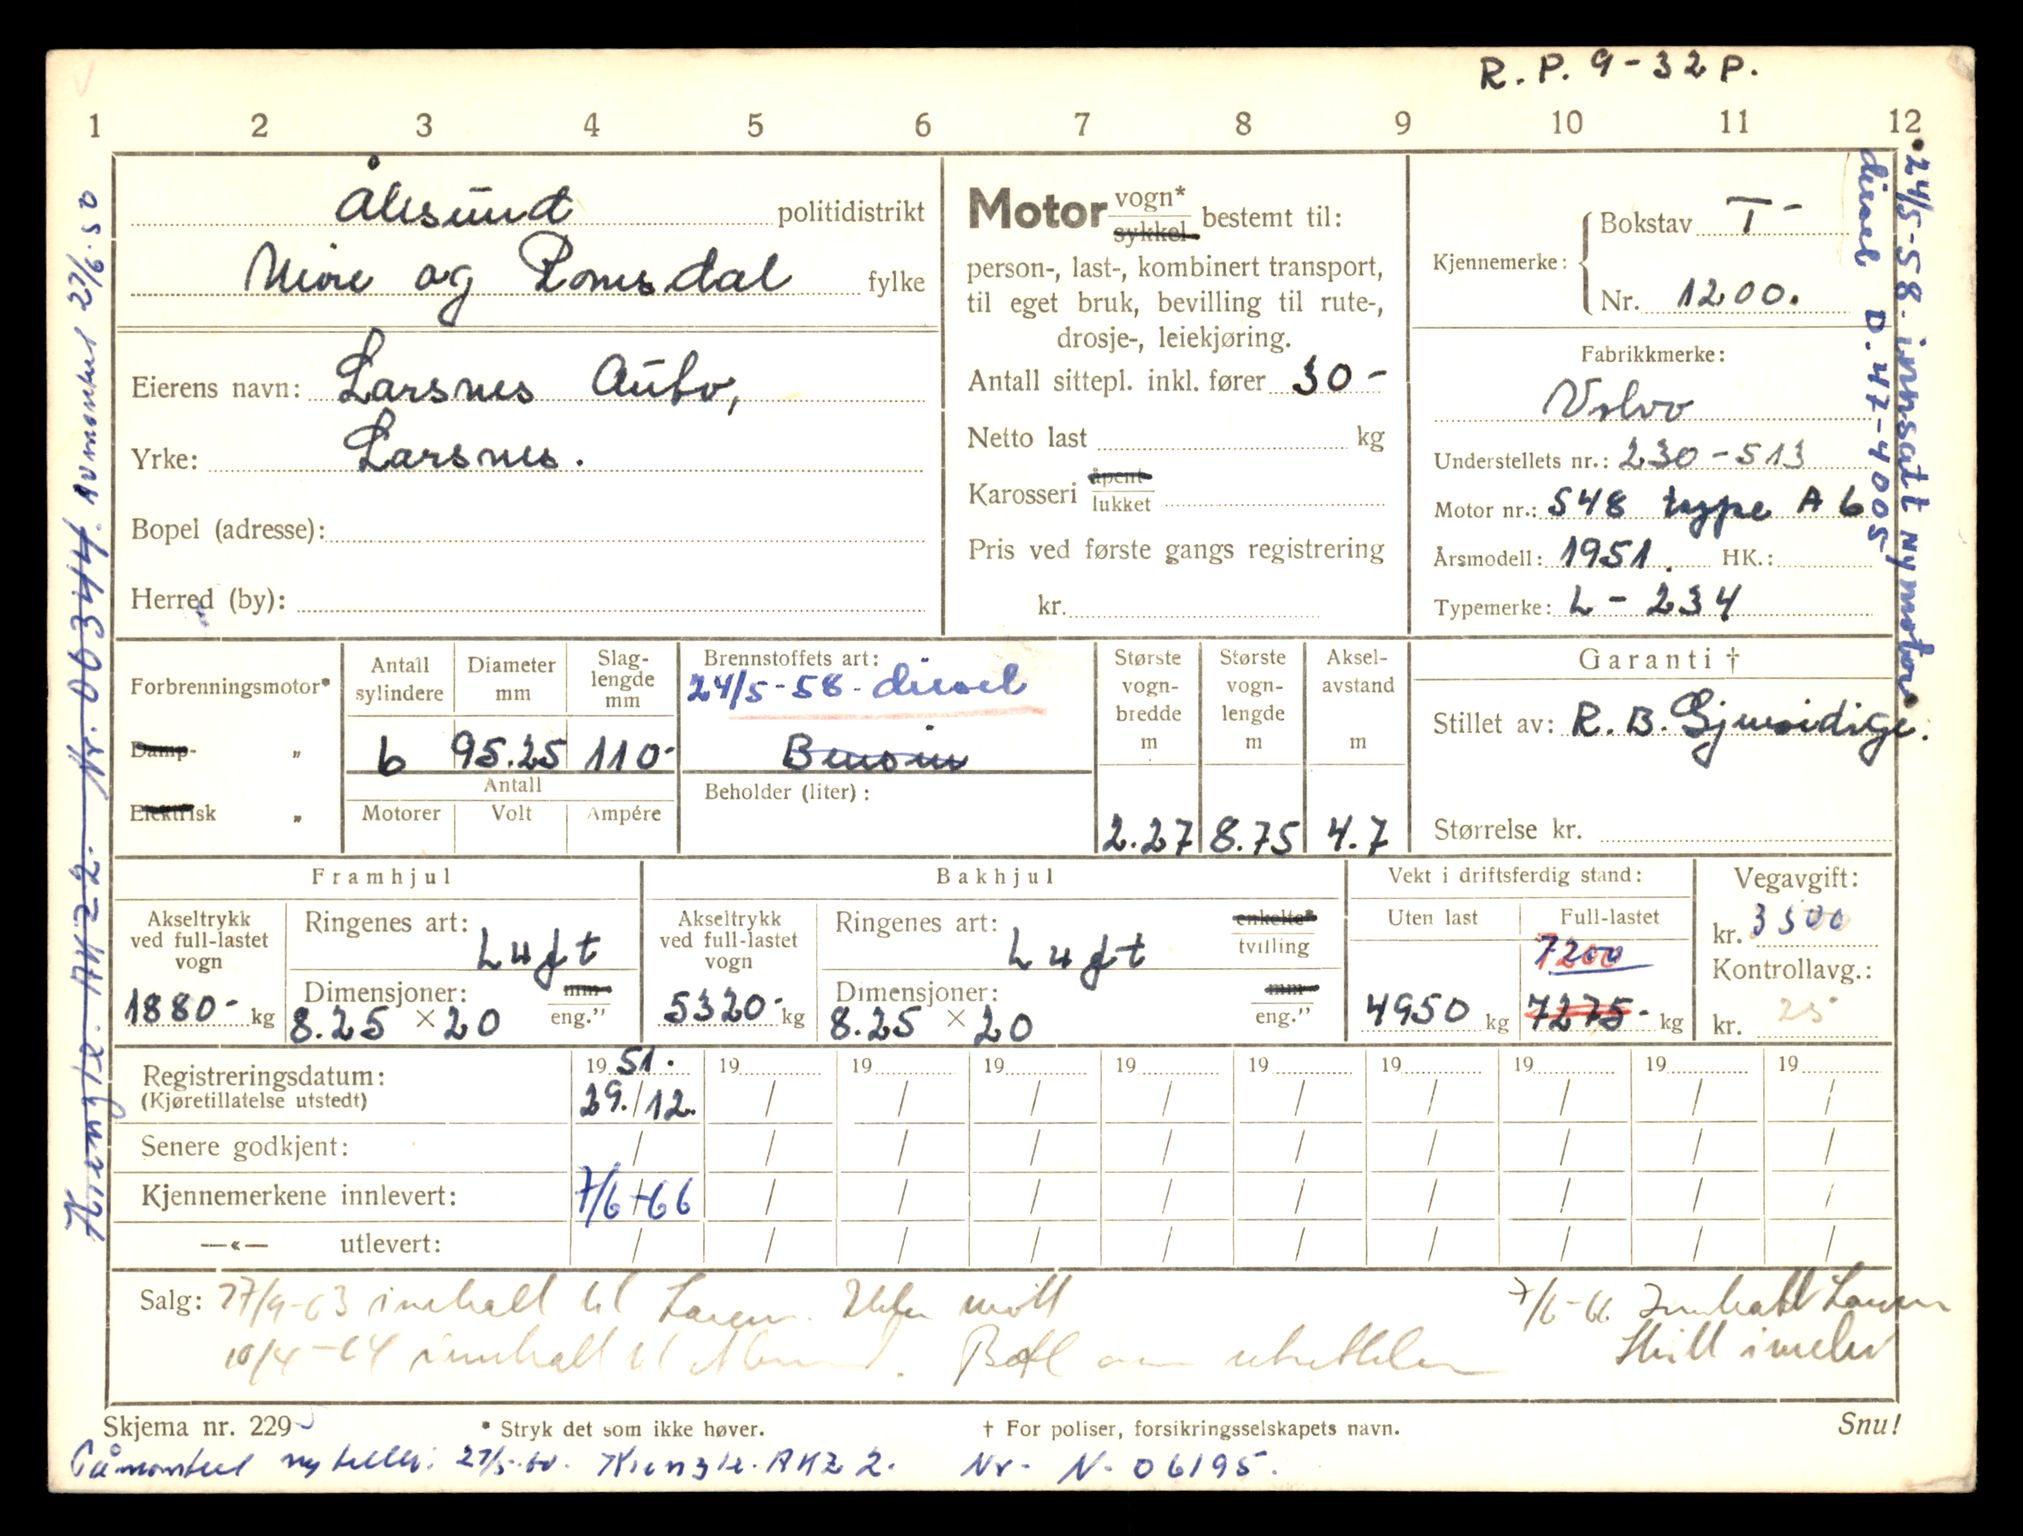 R. P. 9-32 P.
1 2 3 4 5 6 7 8 9 10 11 12
Ålesund politidistrikt
Møre og Romsdal fylke
Eierens navn: Larsnes Auto,
Yrke: Larsnes.
Bopel (adresse):
Herred (by):
Motor vogn* sykkel bestemt til:
person-, last-, kombinert transport,
til eget bruk, bevilling til rute-,
drosje-, leiekjøring.
Antall sittepl. inkl. fører 30 -
Netto last kg
Karosseri åpent lukket
Pris ved første gangs registrering
kr.
Kjennemerke: Bokstav T-
Nr. 1200.
Fabrikkmerke:
Volvo
Understellets nr.: 230-513
Motor nr.: 548 type A 6
Årsmodell: 1951. HK.:
Typemerke: L-234
24/5-58. innsatt ny motor
diesel D. 47-4005
Forbrenningsmotor*
Damp- „
Elektrisk „
Antall sylindere 6
Diameter mm 95.25
Slag-lengde mm 110-
Antall
Motorer Volt Ampére
Brennstoffets art:
24/5-58- diesel
Bensin
Beholder (liter):
Største vogn-bredde m 2.27
Største vogn-lengde m 8.75
Aksel-avstand m 4.7
Garanti †
Stillet av: R. B. Gjensidige.
Størrelse kr.
Framhjul
Akseltrykk ved full-lastet vogn 1880- kg
Ringenes art: Luft
Dimensjoner: mm
8.25 × 20 eng."
Bakhjul
Akseltrykk ved full-lastet vogn 5320- kg
Ringenes art: Luft enkelte* tvilling
Dimensjoner: mm
8.25 × 20 eng."
Vekt i driftsferdig stand:
Uten last 4950 kg
Full-lastet 7200
7275- kg
Vegavgift:
kr. 3500
Kontrollavg.:
kr. 25
Registreringsdatum: 19 51. 19 19 19 19 19 19 19 19 19
(Kjøretillatelse utstedt) 29./12. / / / / / / / / /
Senere godkjent: / / / / / / / / / /
Kjennemerkene innlevert: 7/6-66 / / / / / / / / /
—«— utlevert: / / / / / / / / / /
Salg: 27/9-63 innkalt til Larsn.
7/6-66 Innkalt Larsn
10/4-64 innkalt til Ålesund.
Skilt innlev
Skjema nr. 229 * Stryk det som ikke høver. † For poliser, forsikringsselskapets navn. Snu!
Påmontert ny teller. 27/5-60. Kienzle. AKZ 2. Nr. N. 06195.
Kienzle. AKZ 2. Nr. 00344. Avmontert 27/6.50